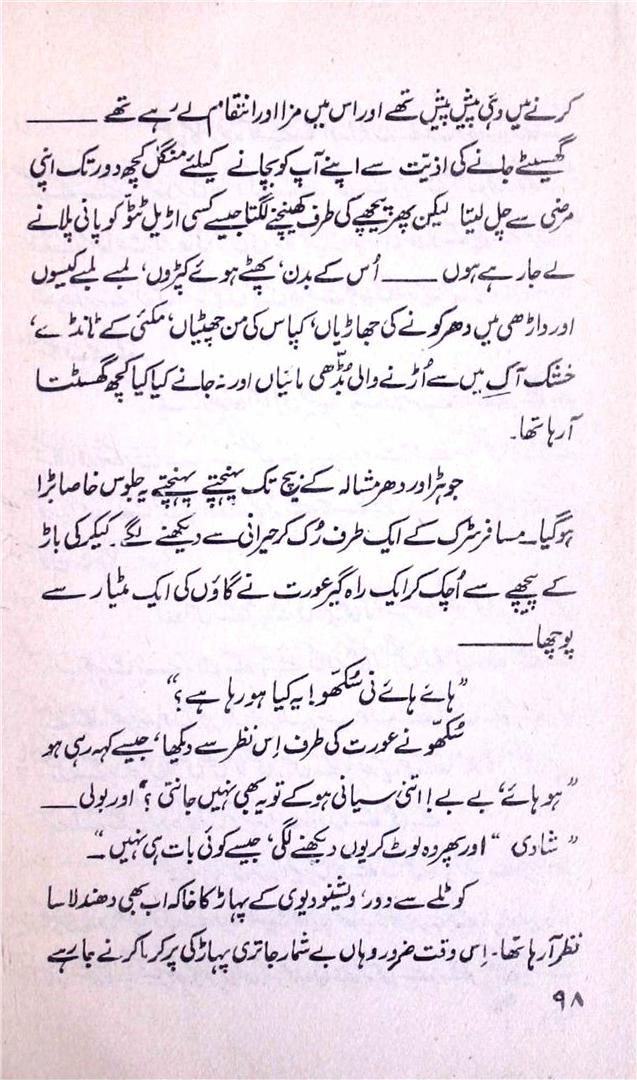 کرنے میں وہی پیش پیش تھے اور اس میں مزا اور انتقام لے رہے تھے ــــــــ
گھسیٹے جانے کی اذیّت سے اپنے آپ کو بچانے کیلئے منگل کچھ دور تک اپنی
مرضی سے چل لیتا لیکن پھر پیچھے کی طرف کھینچنے لگتا جیسے کسی اڑیل ٹٹو کو پانی پلانے
لے جا رہے ہوں ــــــــ اُس کے بدن، پھٹے ہوئے کپڑوں، لمبے لمبے گیسوں
اور داڑھی میں دھرکونے کی جھاڑیاں، کپاس کی من چھٹیاں، مکئی کے ٹانڈے،
خشک آک میں سے اُڑنے والی بُڈّھی مائیاں اور نہ جانے کیا کیا کچھ گھسٹتا
آ رہا تھا۔
جوہڑ اور دھرمشالہ کے بیچ تک پہنچتے پہنچتے یہ جلوس خاصا بڑا
ہو گیا۔ مسافر سڑک کے ایک طرف رُک کر حیرانی سے دیکھنے لگے۔ کیکر کی باڑ
کے پیچھے سے اُچک کر ایک راہ گیر عورت نے گاؤں کی ایک مٹیار سے
پوچھا ــــــــ
"ہائے ہائے نی سُکھّو! یہ کیا ہو رہا ہے؟"
سُکھّو نے عورت کی طرف اِس نظر سے دیکھا، جیسے کہہ رہی ہو
"ہو ہائے، بے بے! اتنی سیانی ہو کے تو یہ بھی نہیں جانتی؟" اور بولی ــــ
"شادی" اور پھر وہ لوٹ کر یوں دیکھنے لگی، جیسے کوئی بات ہی نہیں"ــ
کوٹلے سے دور، ویشنو دیوی کے پہاڑ کا خاکہ اب بھی دھندلا سا
نظر آ رہا تھا۔ اِس وقت ضرور وہاں بے شمار جاتری پہاڑ کی پرکرما کرنے جا رہے
۹۸